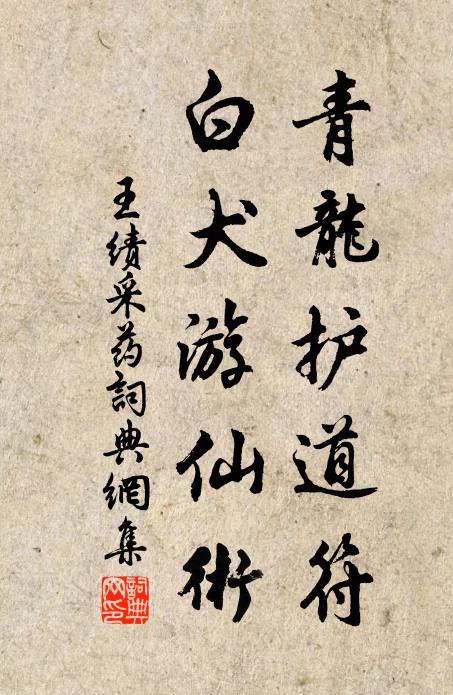 青龍护道符
白犬游仙術
王绩采药詞典網集
詞典网印